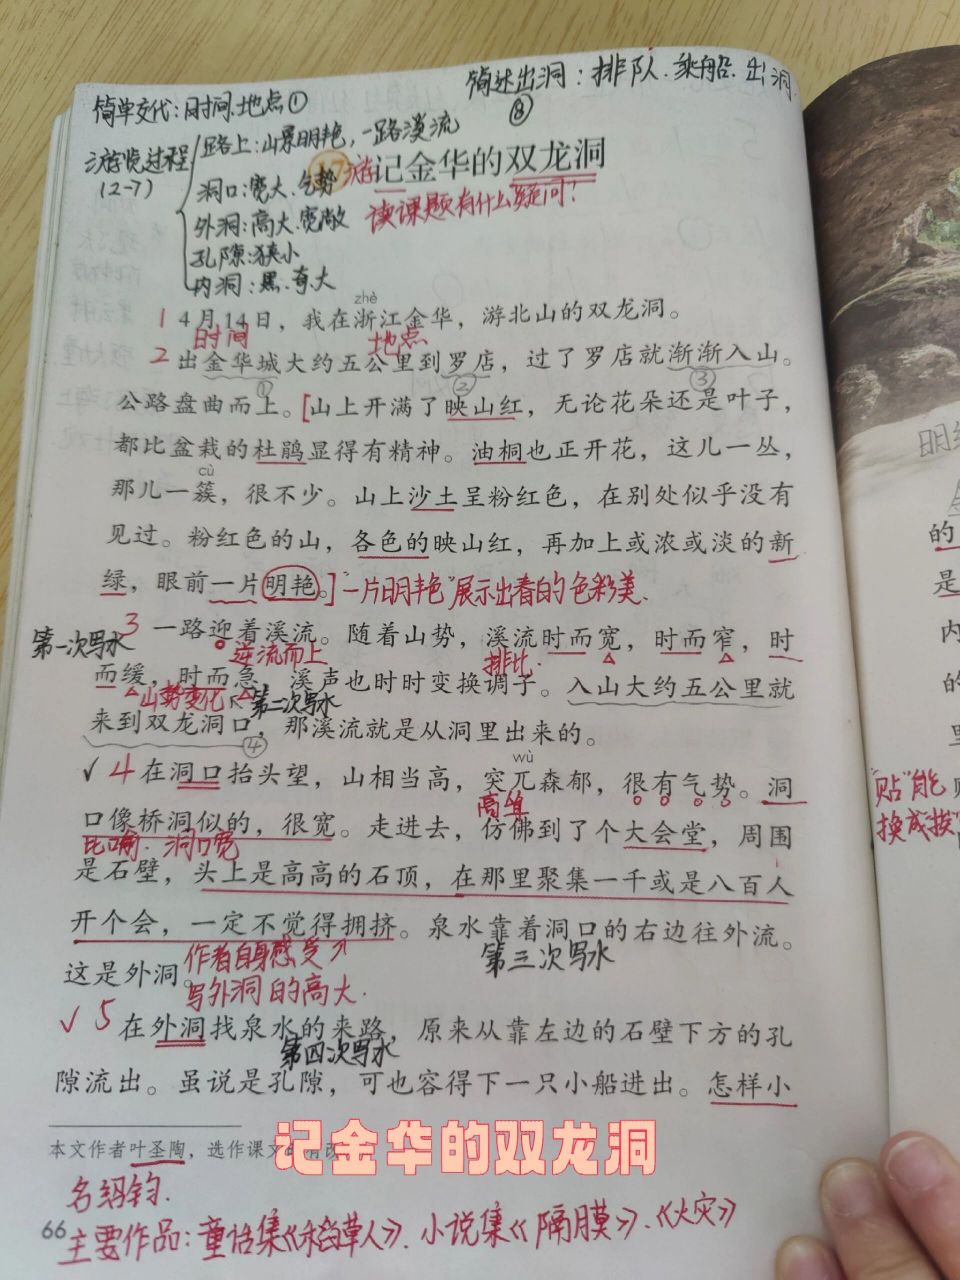 简单交代:时间、地点①
简述出洞:排队、乘船、出洞
⑧
游览过程
(2-7)
路上:山景明艳,一路溪流
洞口:宽大、气势
外洞:高大、宽敞
孔隙:狭小
内洞:黑、奇、大
17 游记金华的双龙洞
读课题有什么疑问?
zhè
1 4月14日,我在浙江金华,游北山的双龙洞。
时间 地点
2 出金华城大约五公里到罗店,过了罗店就渐渐入山。
① ② ③
公路盘曲而上。[山上开满了映山红,无论花朵还是叶子,
都比盆栽的杜鹃显得有精神。油桐也正开花,这儿一丛,
cù
那儿一簇,很不少。山上沙土呈粉红色,在别处似乎没有
见过。粉红色的山,各色的映山红,再加上或浓或淡的新
绿,眼前一片明艳。]"一片明艳"展示出春的色彩美.
第一次写水
3 一路迎着溪流。随着山势,溪流时而宽,时而窄,时
逆流而上 排比.
而缓,时而急,溪声也时时变换调子。入山大约五公里就
山势变化 第二次写水
来到双龙洞口,那溪流就是从洞里出来的。
④
wù
√ 4 在洞口抬头望,山相当高,突兀森郁,很有气势。洞
高耸
口像桥洞似的,很宽。走进去,仿佛到了个大会堂,周围
比喻. 洞口宽
是石壁,头上是高高的石顶,在那里聚集一千或是八百人
开个会,一定不觉得拥挤。泉水靠着洞口的右边往外流。
作者自身感受 第三次写水
这是外洞。
写外洞的高大.
√ 5 在外洞找泉水的来路,原来从靠左边的石壁下方的孔
第四次写水
隙流出。虽说是孔隙,可也容得下一只小船进出。怎样小
本文作者叶圣陶,选作课文
记金华的双龙洞
名绍钧.
66
主要作品:童话集《稻草人》、小说集《隔膜》、《火灾》
明
的
是
内
的
里
"贴"能
换成挨